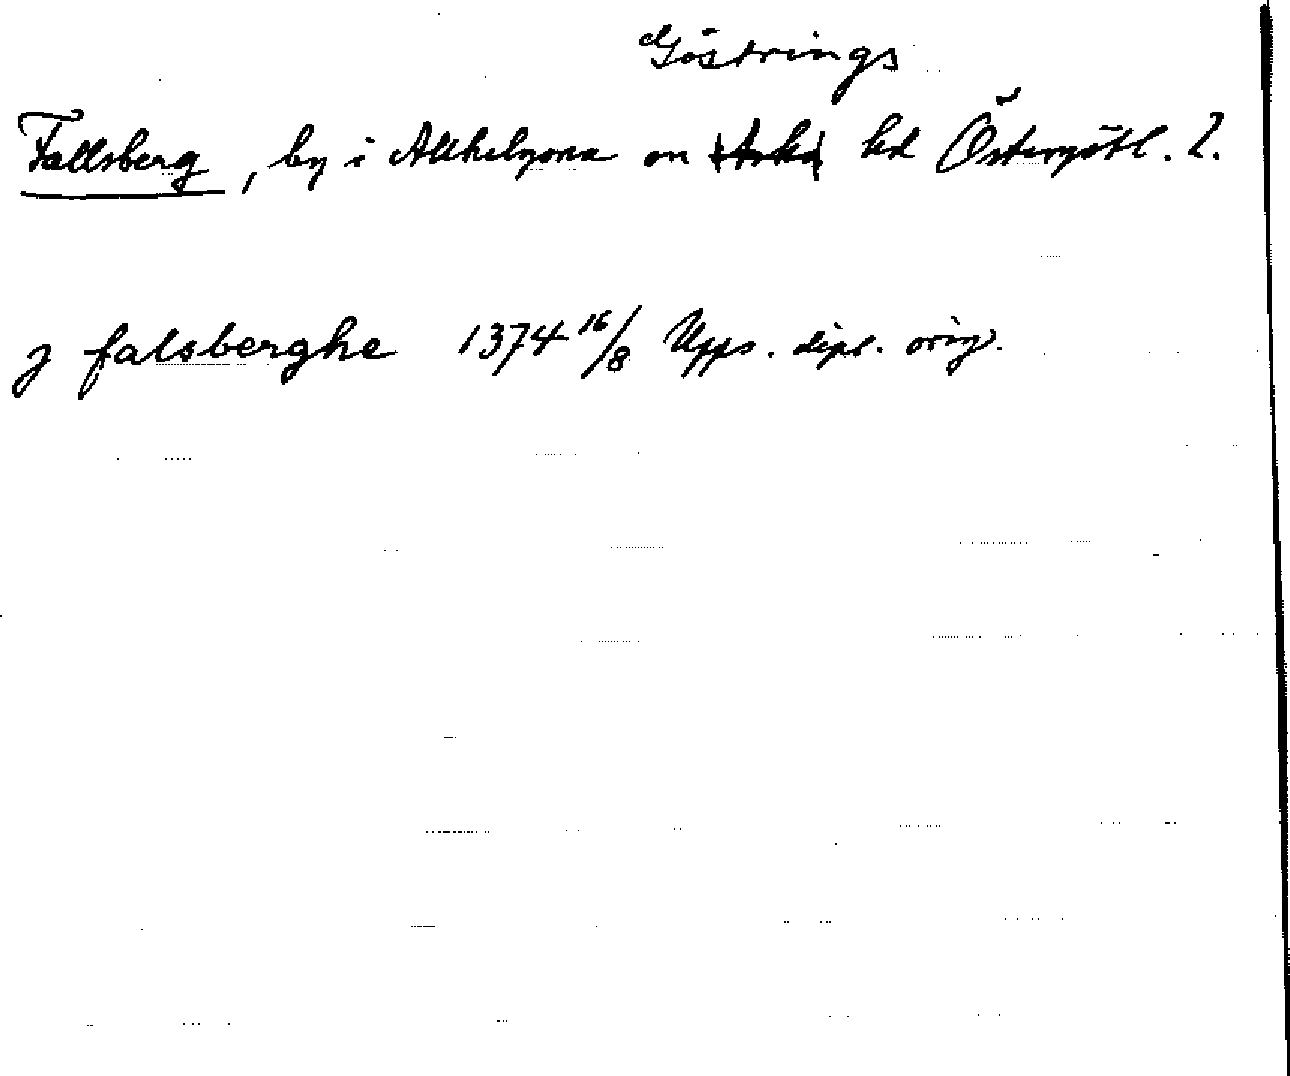 Göstrings
Fallsberg, by i Allhelgona sn hd Östergötl. l.
j falsberghe 1374 16/8 Upps. dipl. orig.